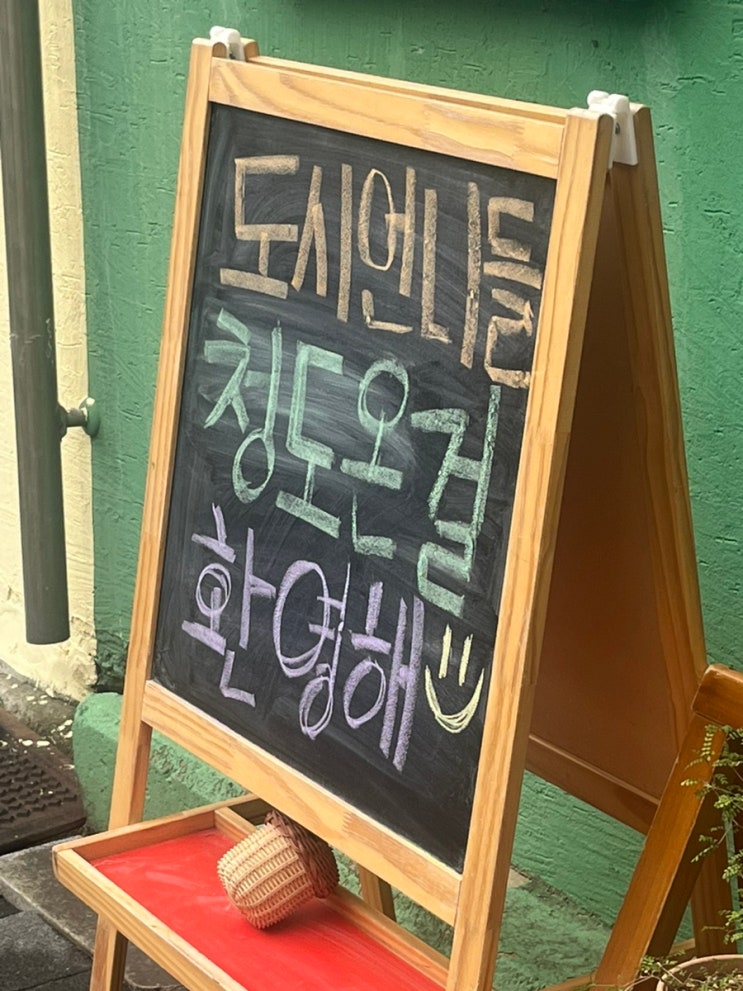 도시언니들
청도온걸
환영해